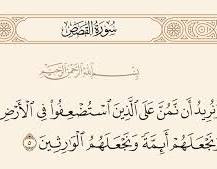 سُورَةُ القَصَصِ
بِسْمِ اللَّهِ الرَّحْمَٰنِ الرَّحِيمِ
وَنُرِيدُ أَن نَّمُنَّ عَلَى الَّذِينَ اسْتُضْعِفُوا فِي الْأَرْضِ
وَنَجْعَلَهُمْ أَئِمَّةً وَنَجْعَلَهُمُ الْوَارِثِينَ ٥